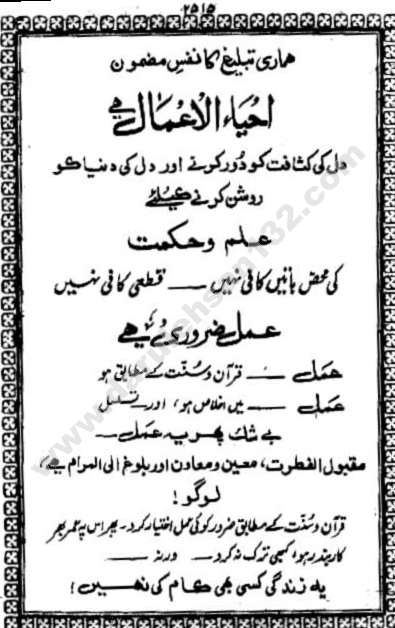 ۲۵۱۵
ہماری تبلیغ کا نفسِ مضمون
احیاء الاعمال ہے
دل کی کثافت کو دُور کرنے اور دل کی دنیا کو
روشن کرنے کیلئے
علم و حکمت
کی محض باتیں کافی نہیں — قطعی کافی نہیں
عمل ضروری ہے
عمل — قرآن و سنّت کے مطابق ہو
عمل — میں اخلاص ہو، اور تسلسل
بے شک پھر یہ عمل —
مقبول الفطرت، معین و معاون اور بلوغ الی المرام ہے،
لوگو!
قرآن و سنّت کے مطابق ضرور کوئی عمل اختیار کرو۔ پھر اس پہ عمر بھر
کاربند رہو، کبھی ترک نہ کرو — ورنہ —
یہ زندگی کسی بھی کام کی نہیں!
www.darulehsan132.com